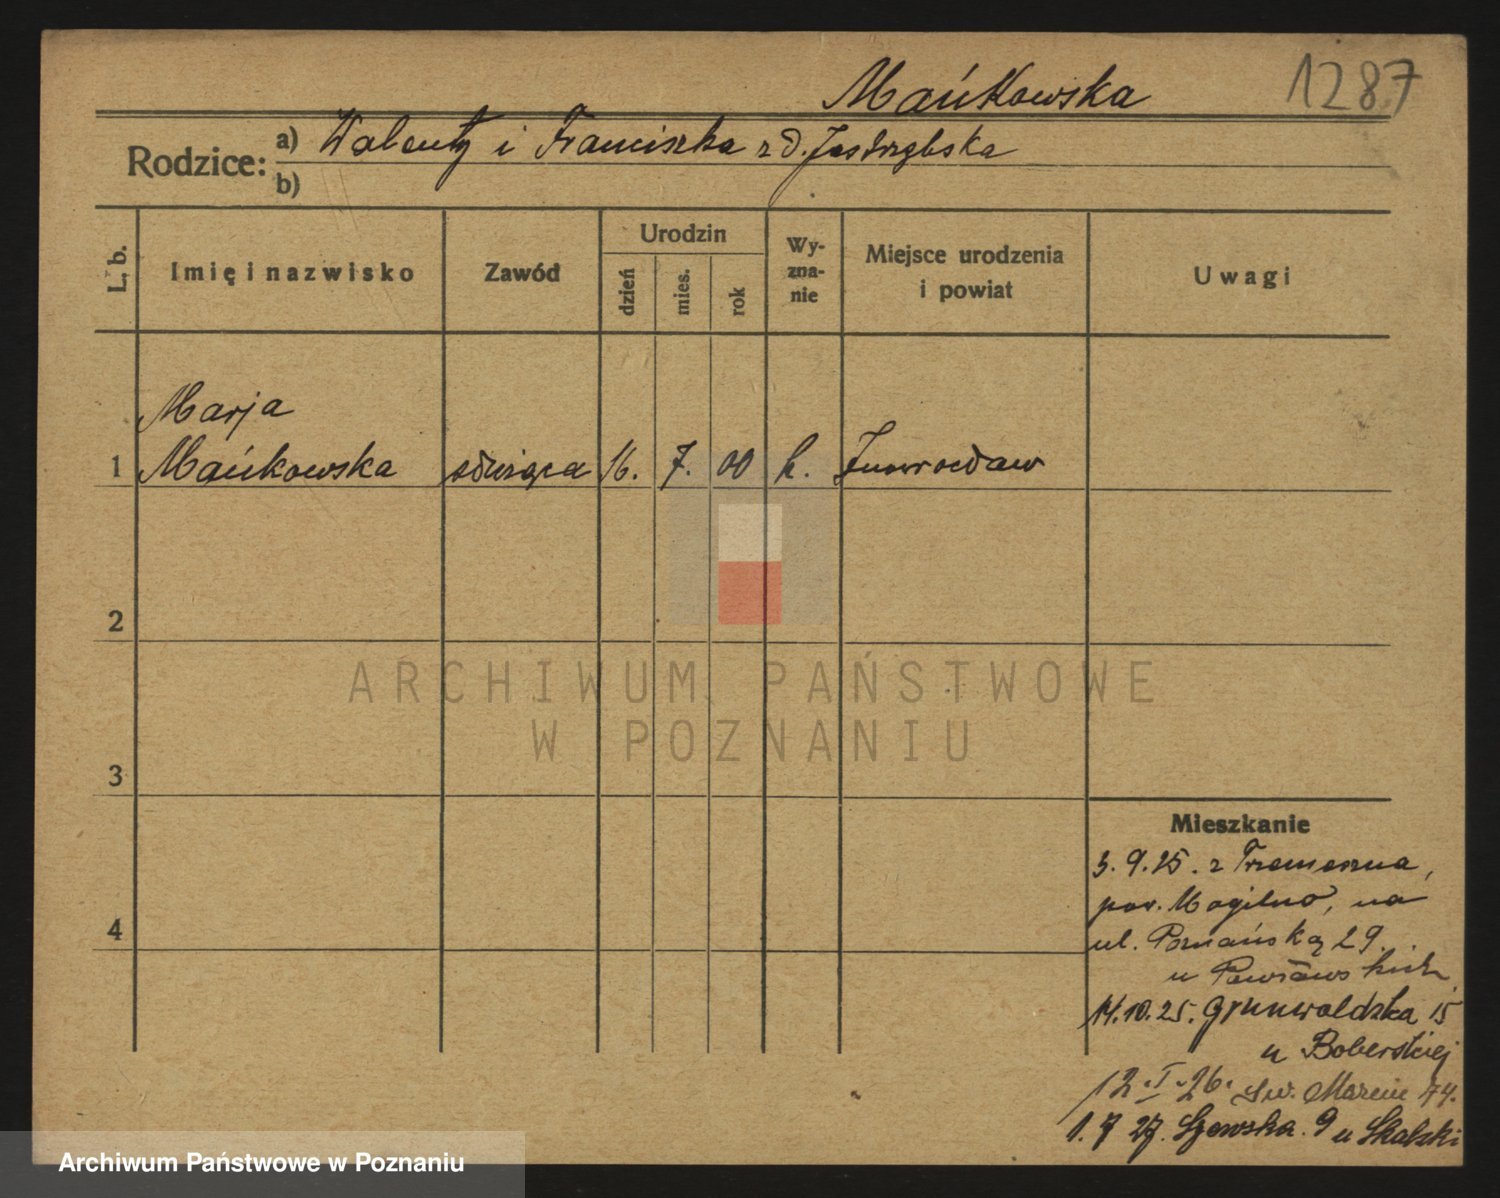 Mańkowska
1287
Rodzice:
a) Walenty i Franciszka z d. Jastrzębska
b)
L. b.
Imię i nazwisko
Zawód
Urodzin
dzień
mies.
rok
Wy-
zna-
nie
Miejsce urodzenia
i powiat
Uwagi
Marja
1 Mańkowska służąca 16. 7. 00 k. Inowrocław
2
ARCHIWUM PAŃSTWOWE
W POZNANIU
3
4
Mieszkanie
3.9.25. z Trzemeszna,
pow. Mogilno, na
ul. Poznańską 29.
u
14.10.25. Grunwaldzka 15
u Boberskiej
12.I.26. Św. Marcin 74.
1.7 27. 9 u Skalski
Archiwum Państwowe w Poznaniu